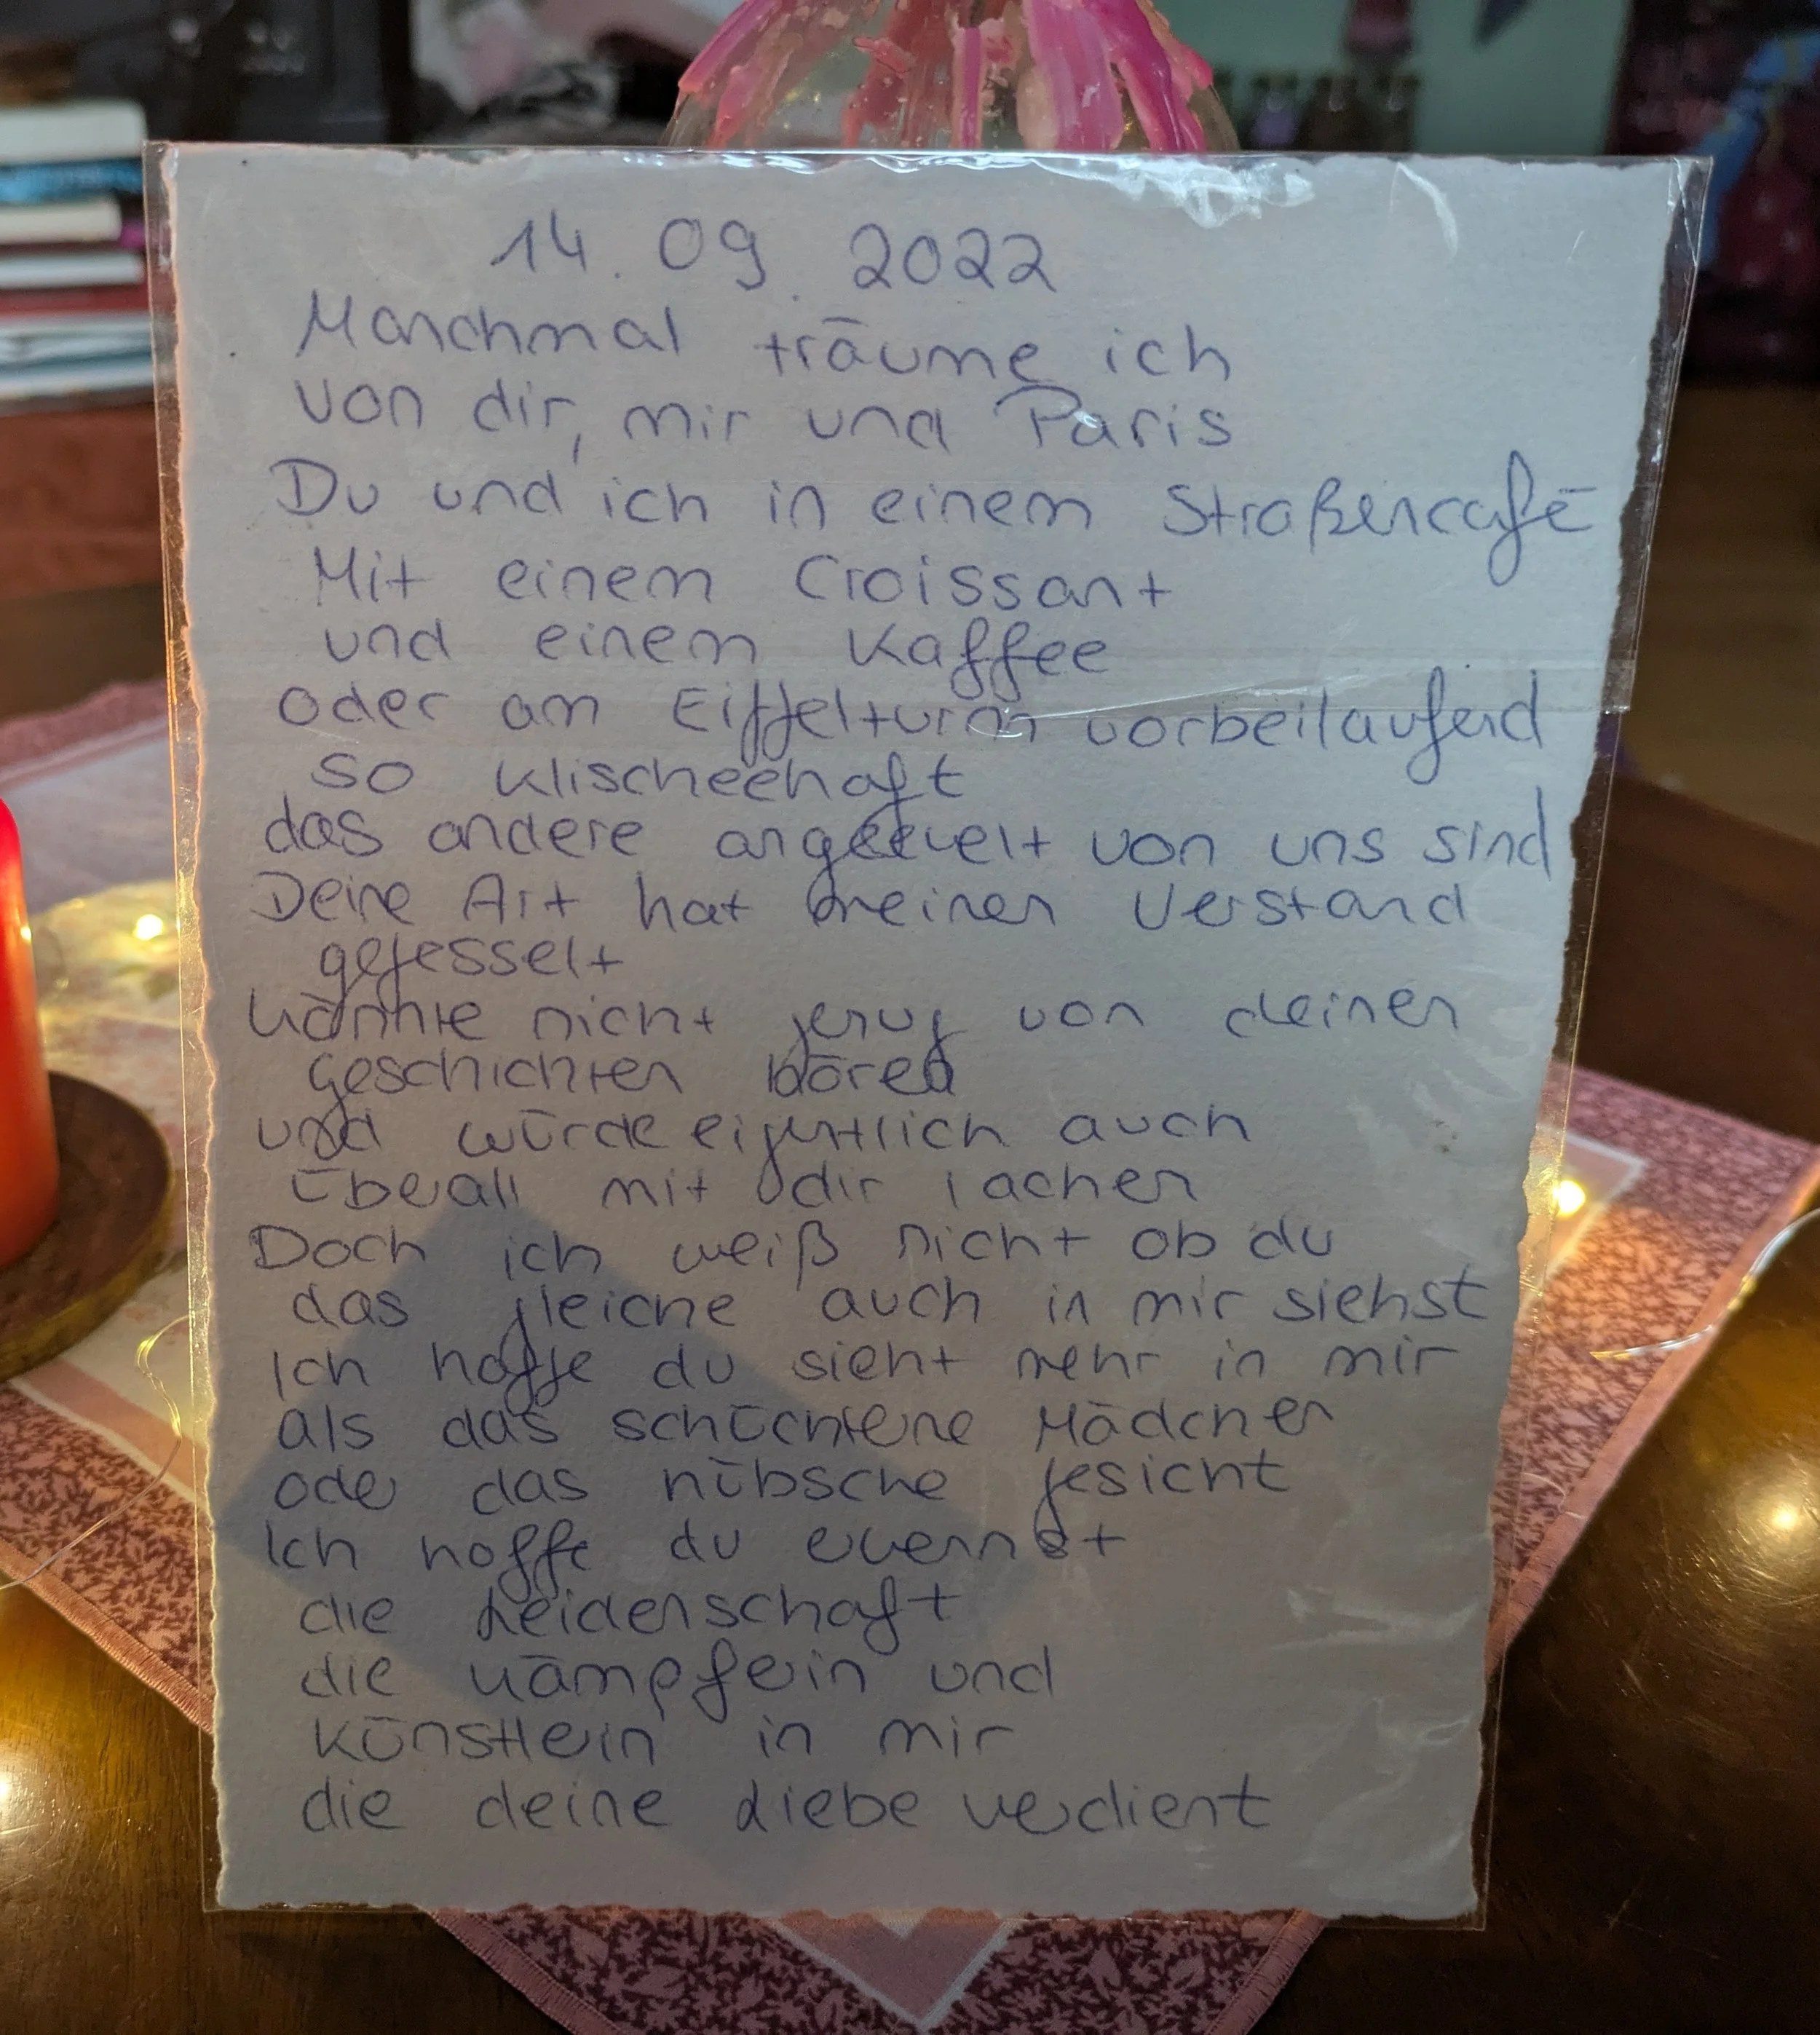 14.09.2022
Manchmal träume ich
von dir, mir und Paris
Du und ich in einem Straßencafé
Mit einem Croissant
und einem Kaffee
oder am Eiffelturm vorbeilaufend
so klischeehaft
das andere angeekelt von uns sind
Deine Art hat meinen Verstand
gefesselt
könnte nicht genug von deinen
Geschichten hören
und würde eigentlich auch
überall mit dir lachen
Doch ich weiß nicht ob du
das gleiche auch in mir siehst
Ich hoffe du sieht mehr in mir
als das schüchterne Mädchen
oder das hübsche Gesicht
Ich hoffe du erkennst
die Leidenschaft
die Kämpferin und
Künstlerin in mir
die deine Liebe verdient